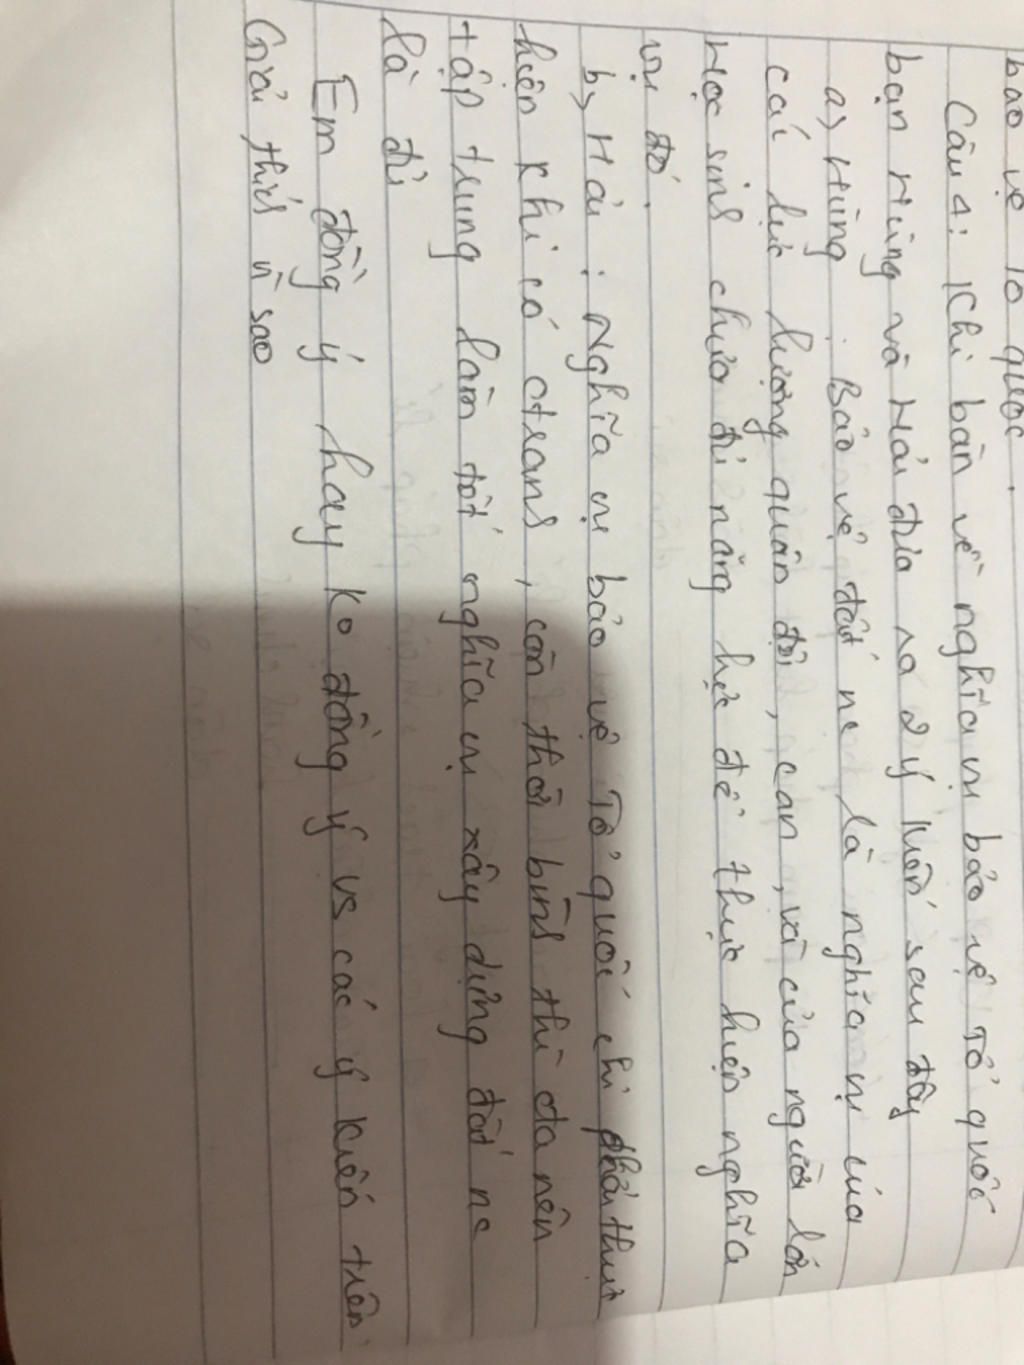 bảo vệ Tổ quốc.
Câu 4: Khi bàn về nghĩa vụ bảo vệ Tổ quốc
bạn Hùng và Hải đưa ra 2 ý kiến sau đây
a) Hùng : Bảo vệ đất nc là nghĩa vụ của
các lực lượng quân đội, can, và của người lớn
Học sinh chưa đủ năng lực để thực hiện nghĩa
vụ đó.
b) Hải : Nghĩa vụ bảo vệ Tổ quốc chỉ phải thực
hiện khi có ctranh, còn thời bình thì cta nên
tập trung làm tốt nghĩa vụ xây dựng đất nc
là đủ
Em đồng ý hay ko đồng ý vs các ý kiến trên
Giải thích vì sao